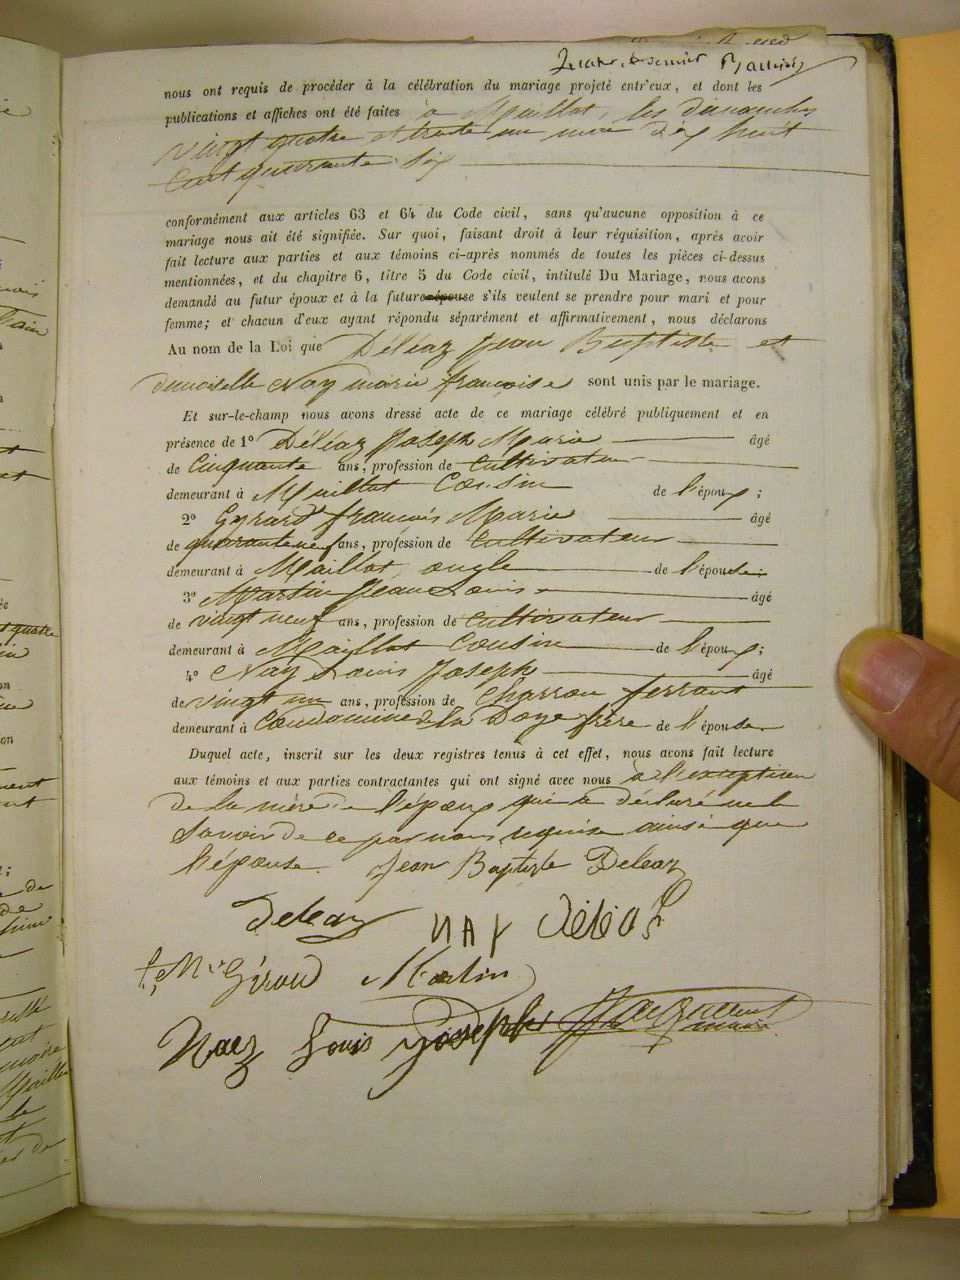 nous ont requis de procéder à la célébration du mariage projeté entr'eux, et dont les
publications et affiches ont été faites à Maillat, les dimanches
vingt quatre et trente un mai dix huit
cent quarante six
conformément aux articles 63 et 64 du Code civil, sans qu'aucune opposition à ce
mariage nous ait été signifiée. Sur quoi, faisant droit à leur réquisition, après avoir
fait lecture aux parties et aux témoins ci-après nommés de toutes les pièces ci-dessus
mentionnées, et du chapitre 6, titre 5 du Code civil, intitulé Du Mariage, nous avons
demandé au futur époux et à la future épouse s'ils veulent se prendre pour mari et pour
femme; et chacun d'eux ayant répondu séparément et affirmativement, nous déclarons
Au nom de la Loi que Déléaz Jean Baptiste et
demoiselle Nay marie françoise sont unis par le mariage.
Et sur-le-champ nous avons dressé acte de ce mariage célébré publiquement et en
présence de 1° Déléaz Joseph Marie âgé
de Cinquante ans, profession de Cultivateur
demeurant à Maillat Cousin de l'époux;
2° Gyraud françois Marie âgé
de quaranteneuf ans, profession de Cultivateur
demeurant à Maillat, oncle de l'épouse
3° Martin Jean Louis âgé
de vingt neuf ans, profession de Cultivateur
demeurant à Maillat Cousin de l'époux;
4° Nay Louis Joseph âgé
de vingt un ans, profession de Charron ferrant
demeurant à Condamine de la Doye frère de l'épouse
Duquel acte, inscrit sur les deux registres tenus à cet effet, nous avons fait lecture
aux témoins et aux parties contractantes qui ont signé avec nous à l'exception
de la mère de l'époux qui a déclaré ne le
savoir de ce par nous requise ainsi que
l'épouse. Jean Baptiste Deleaz
deleaz NAY déléaz
f, Mie Giroud Martin
Naez Louis Joseph
maire